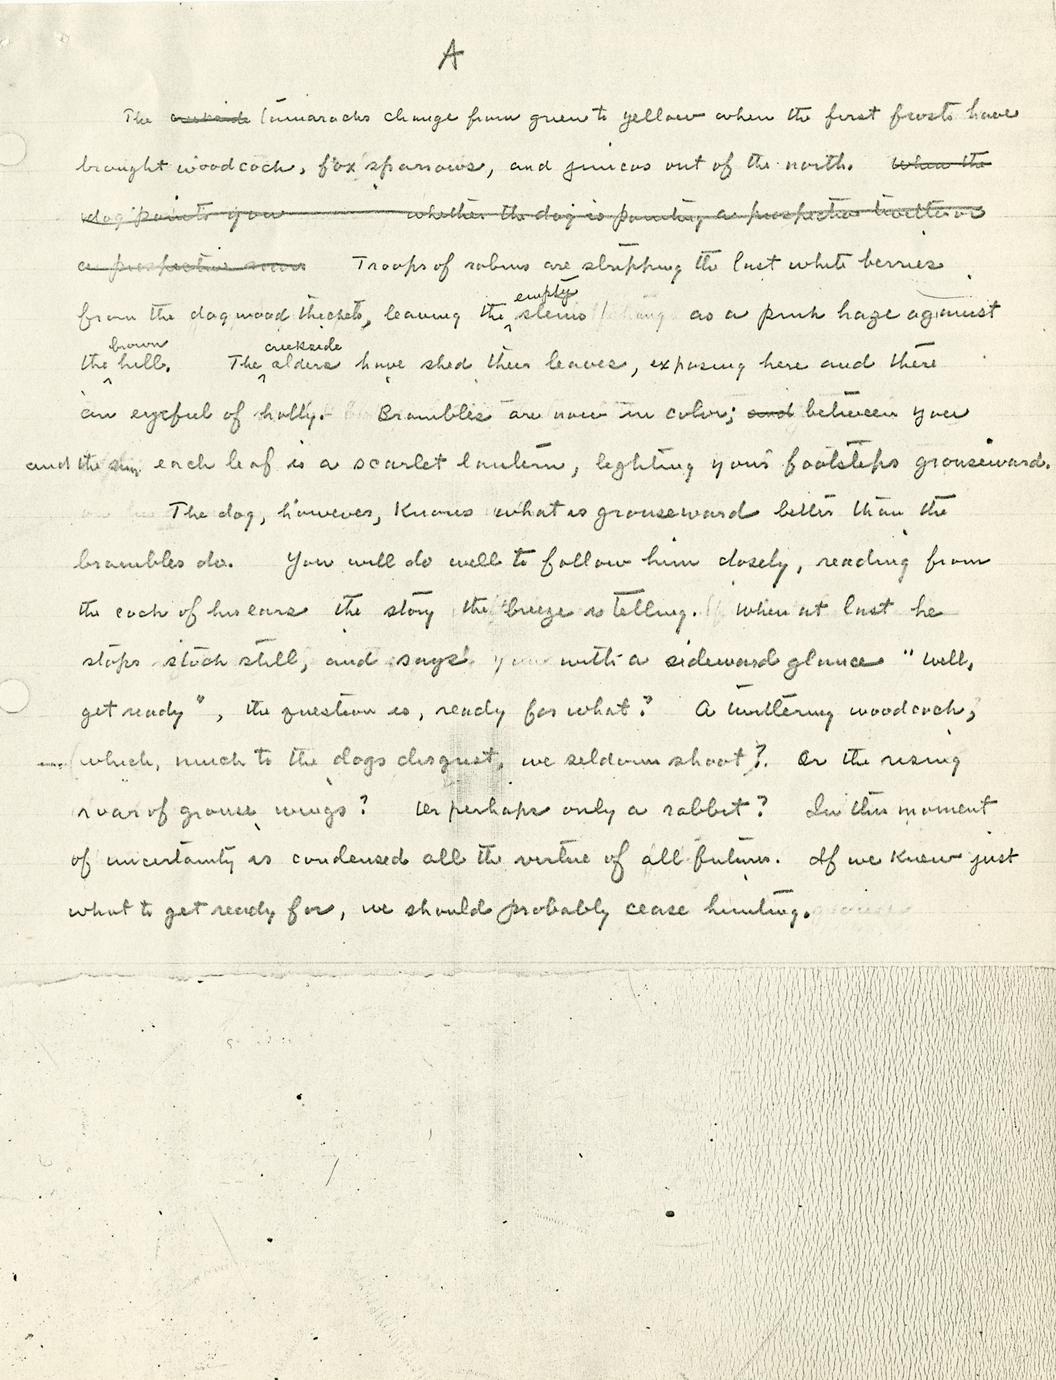 A
The creekside tamaracks change from green to yellow when the first frosts have
brought woodcock, fox sparrows, and juncos out of the north. When the
dog points you whether the dog is pointing a prospective twitter or
a prospective roar Troops of robins are stripping the last white berries
from the dogwood thickets, leaving the empty stems as a pink haze against
the brown hill. The creekside alders have shed their leaves, exposing here and there
an eyeful of holly. Brambles are now in color; and between you
and the sun each leaf is a scarlet lantern, lighting your footsteps grouseward.
The dog, however, knows what is grouseward better than the
brambles do. You will do well to follow him closely, reading from
the cock of his ears the story the breeze is telling. When at last he
stops stock still, and says with a sideward glance "well,
get ready", the question is, ready for what? A twittering woodcock,
(which, much to the dogs disgust, we seldom shoot)? Or the rising
roar of grouse wings? Or perhaps only a rabbit? In this moment
of uncertainty is condensed all the virtue of all future. If we knew just
what to get ready for, we should probably cease hunting.